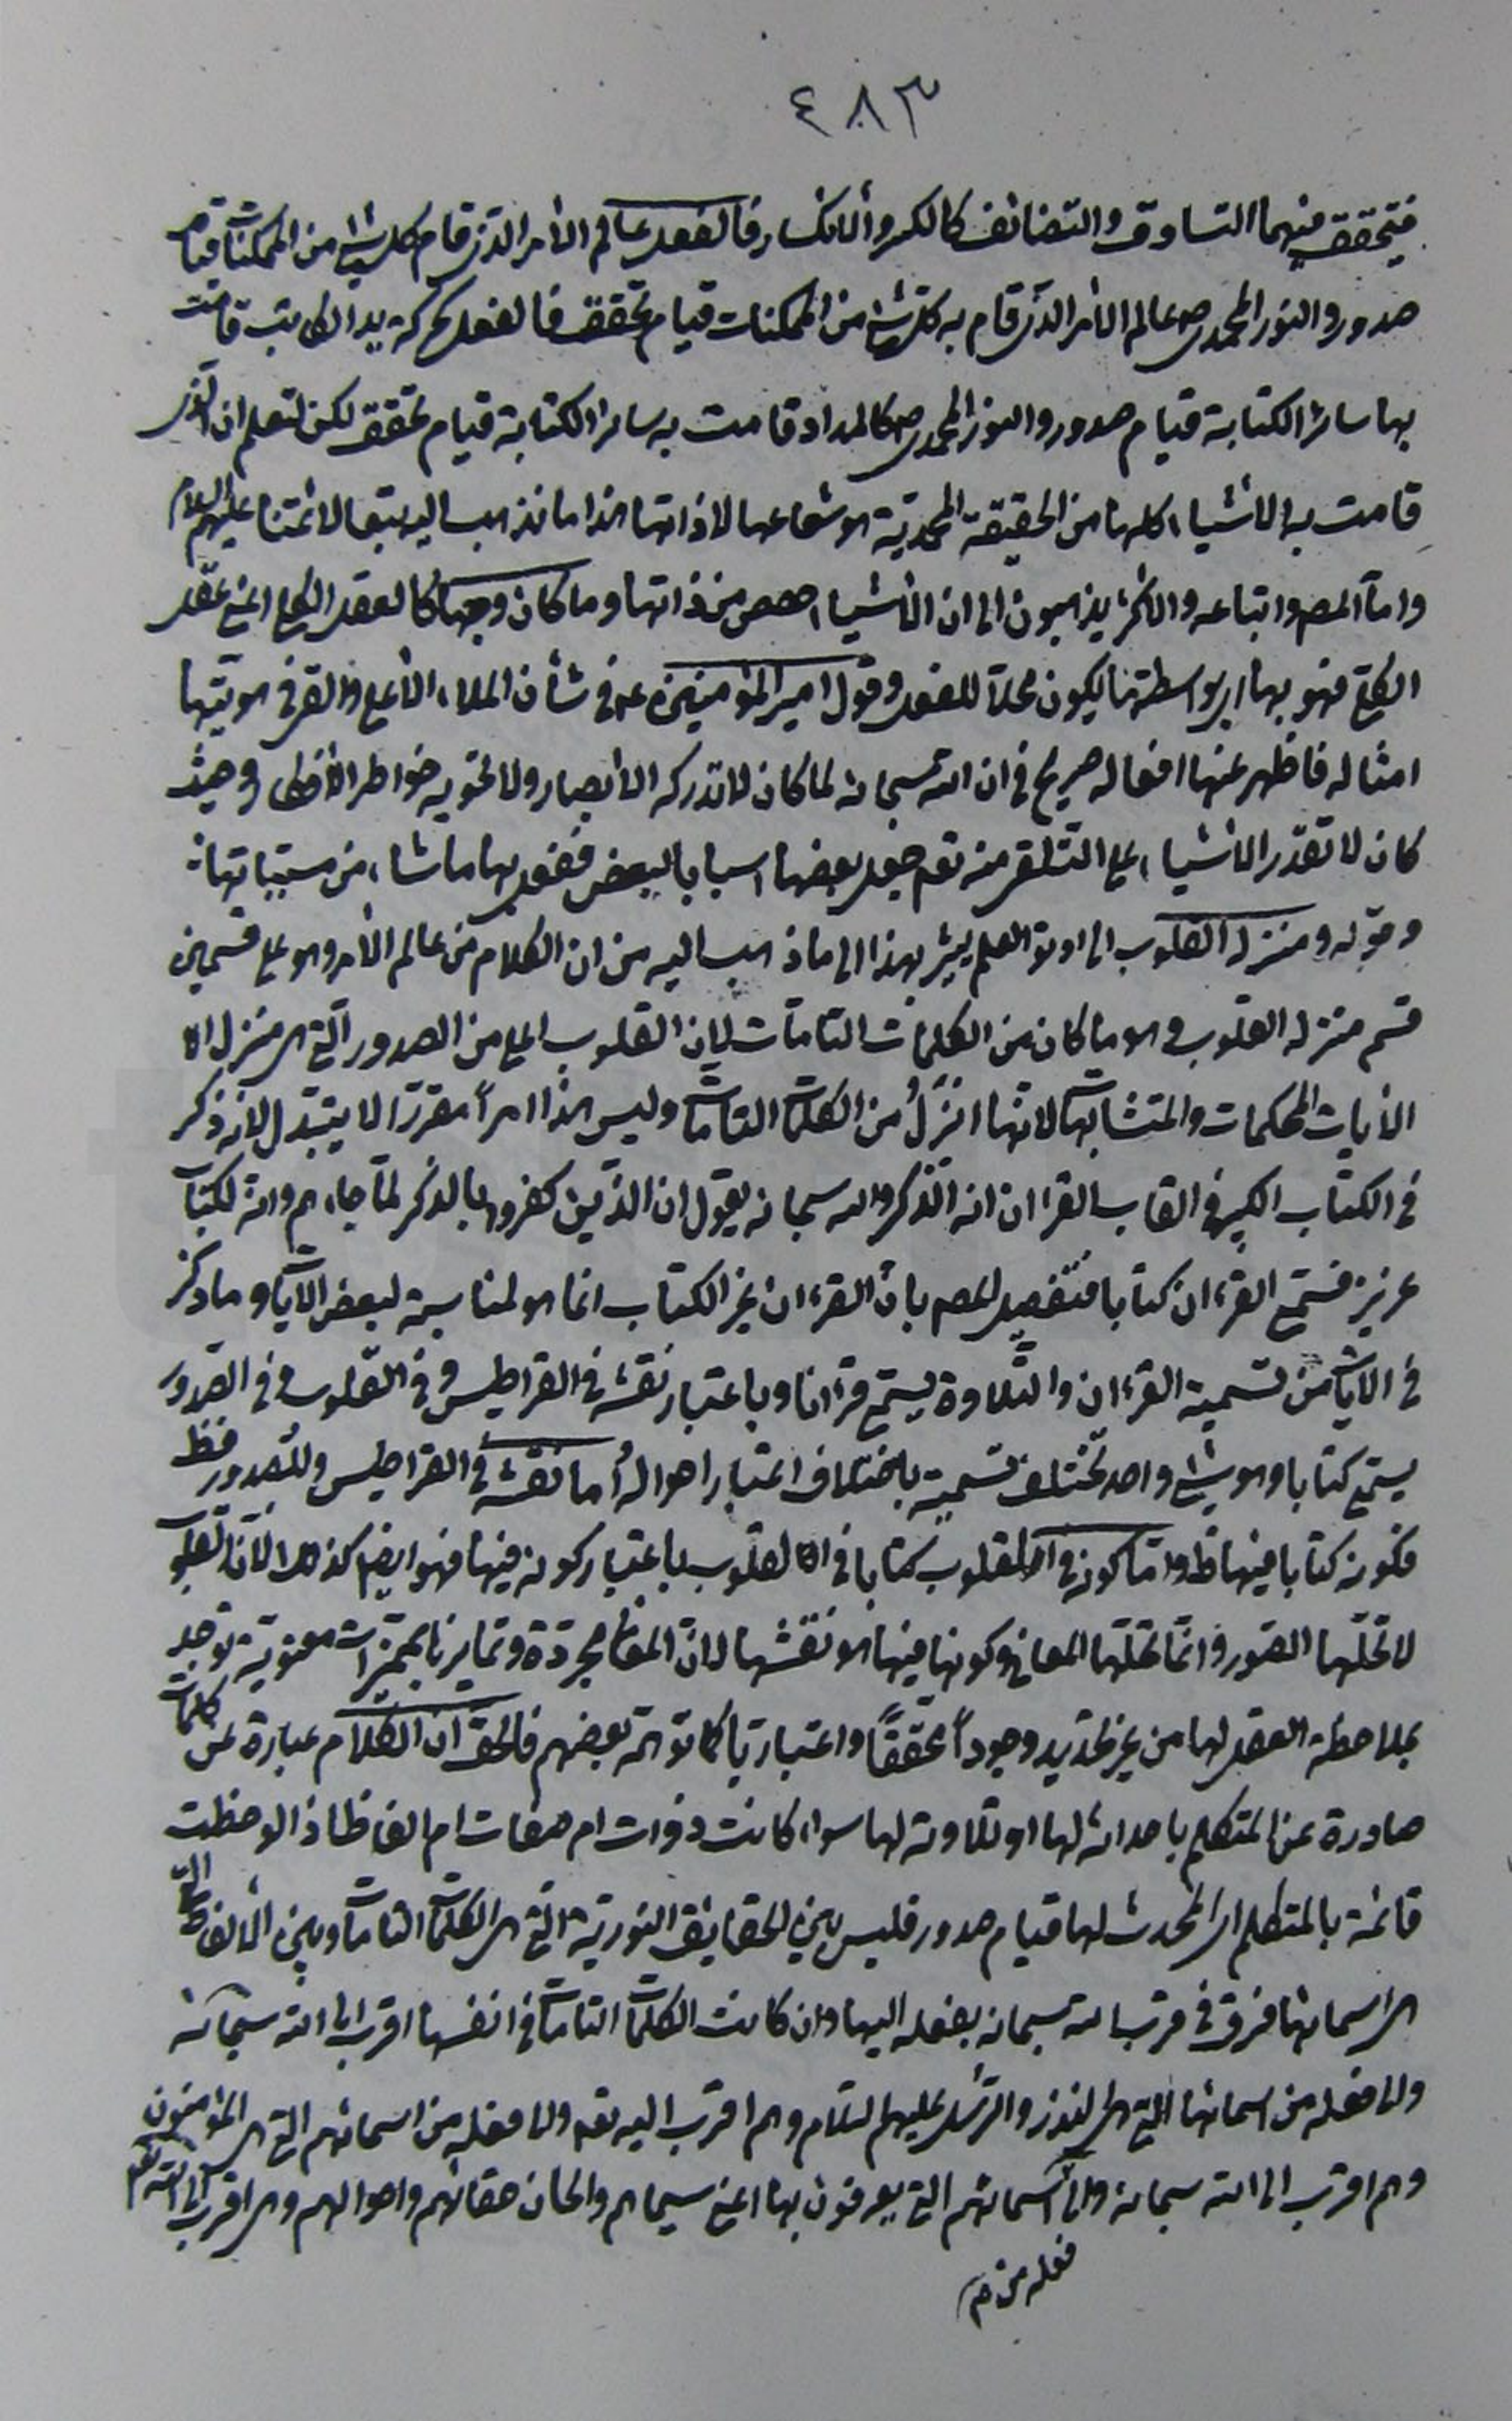 ٤٨٣
فيتحقق منهما التساوق والتضائف كالكسر والانكسار فالفعل عالم الأمر الذي قام كل شئ من الممكنات قيام
صدور والنور المحمدي ص عالم الأمر الذي قام به كل شئ من الممكنات قيام تحقق فالفعل كحركة يد الكاتب قامت
بها سائر الكتابة قيام صدور والنور المحمدي ص كالمداد قامت به سائر الكتابة قيام تحقق لكن لتعلم ان الذي
قامت به الأشياء كلها من الحقيقة المحمدية هو شعاعها لا ذاتها هذا ما نذهب اليه تبعا لائمتنا عليهم السلام
واما المص واتباعه والاكثر يذهبون الى ان الأشياء حصص من ذاتها وما كان وجها كالعقل الكلي اعني عقل
الكل فهو بها اي بواسطتها يكون محلا للفعل وقول امير المؤمنين ع في شأن الملاء الأعلى والقى في هويتها
امثاله فاظهر عنها افعاله صريح في ان الله سبحانه لما كان لا تدركه الأبصار ولا تحويه خواطر الأفكار وحيث
كان لا تقدر الأشياء على التلقي منه تعم جعل بعضها اسبابا لبعض ففعل بها ما شاء من مسبباتها
وقوله ومنزله القلوب الى اولوا العلم يشير بهذا الى ما ذهب اليه من ان الكلام من عالم الأمر وهو على قسمين
قسم منزله القلوب وهو ما كان من الكلمات التامات لان القلوب اعلى من الصدور التي هي منزل
الأيات المحكمات والمتشابهات لانها انزل من الكلمات التامات وليس هذا امراً مقررا لا يتبدل لانه ذكر
في الكتاب الكبير في القاب القرءان انه الذكر والله سبحانه يقول ان الذين كفروا بالذكر لما جاءهم وانه لكتاب
عزيز فسمي القرءان كتابا فتفصيل المص بان القرءان غير الكتاب انما هو لمناسبة لبعض الآيات وما ذكر
في الآيات من تسمية القرءان والتلاوة يسمى قرءانا وباعتبار نقشه في القراطيس وفي القلوب وفي الصدور
يسمى كتابا وهو شئ واحد تختلف تسميته باختلاف اعتبار احواله أما نقشه في القراطيس والصدور فظ
فكونه كتابا فيها ظ واما كونه في القلوب كتابا في القلوب باعتبار كونه فيها فهو ايضا كذلك لأن القلوب
لا تحلها الصور وانما تحلها المعاني وكونها فيها هو نقشها لان المعاني مجردة وتمايزها بمميزات معنوية توجد
بملاحظة العقل لها من غير تحديد وجوداً محققاً واعتباريا كما توهمه بعضهم فالحق ان الكلام عبارة عن كلمات
صادرة عن المتكلم باحداثه لها او تلاوته لها سواء كانت ذوات ام صفات ام الفاظا اذا لوحظت
قائمة بالمتكلم اي المحدث لها قيام صدور فليس بين الحقايق النورية التي هي الكلمات التامات وبين الألفاظ التي
هي اسمائها فرق في قرب الله سبحانه بفعله اليها وان كانت الكلمات التامات في انفسها اقرب الى الله سبحانه
والى فعله من اسمائها التي هي النذر والرسل عليهم السلام وهم اقرب اليه تعم والى فعله من اسمائهم التي هي المؤمنون
وهم اقرب الى الله سبحانه والى اسمائهم التي يعرفون بها اعني سيماهم والحان مقالهم واحوالهم وهي اقرب الى الله تعم
فعله من